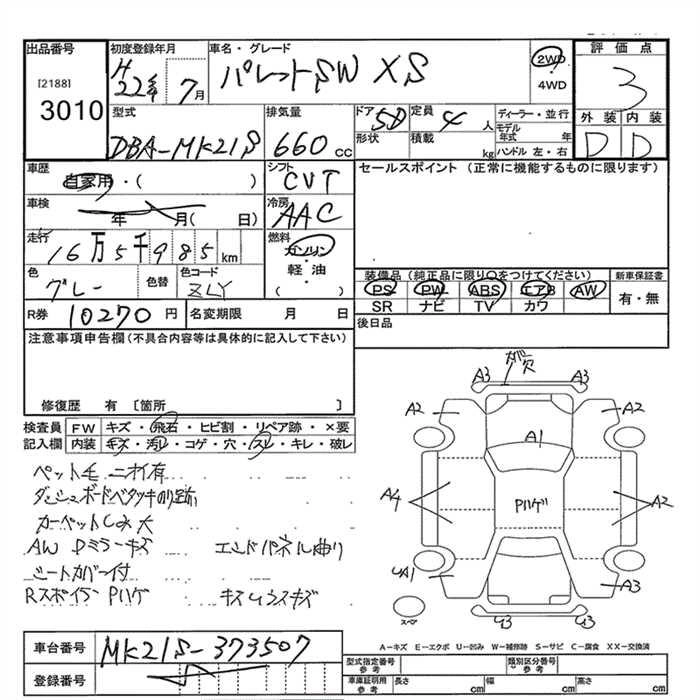 出品番号
[2188]
3010
初度登録年月
H22年 7月
車名・グレード
パレットSW XS
2WD
4WD
評価点
3
外装 内装
D D
型式
DBA-MK21S
排気量
660 cc
ドア 5D
形状
定員 4 人
積載 kg
ディーラー・並行
モデル年式 年
ハンドル 左・右
車歴
自家用・( )
シフト
CVT
セールスポイント (正常に機能するものに限ります)
車検
年 月( 日)
冷房
AAC
走行
16万5千985km
燃料
ガソリン・軽油
( )
色
グレー
色替
色コード
ZLY
装備品(純正品に限り○をつけてください)
PS PW ABS エアB AW
SR ナビ TV カワ
新車保証書
有・無
R券 10270円
名変期限 月 日
後日品
注意事項申告欄(不具合内容等は具体的に記入して下さい)
修復歴 有〔箇所 〕
検査員 FW キズ・飛石・ヒビ割・リペア跡・×要
記入欄 内装 キズ・汚レ・コゲ・穴・スレ・キレ・破レ
ペット毛 ニオイ有
ダッシュボードベタツキのり跡
カーペットしみ大
AW Dミラーキズ エンドパネル曲り
シートカバー付
Rスポイラ Pハゲ キズUウスキズ
A3 カバー欠 A3
A2 A2
A1
A4 Pハゲ A2
UA1 A3
U3 U3
スペア
A-キズ E-エクボ U-凹み W-補修跡 S-サビ C-腐食 XX-交換済
車台番号 MK21S-373507
登録番号
型式指定番号 参考
類別区分番号 参考
車庫証明用 参考
長さ cm 幅 cm 高さ cm